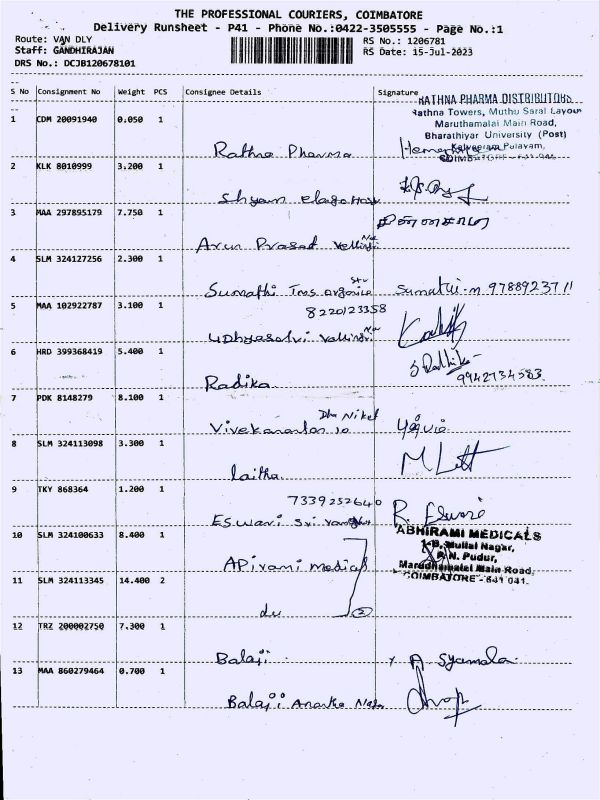 THE PROFESSIONAL COURIERS, COIMBATORE
Delivery Runsheet - P41 - Phone No.:0422-3505555 - Page No.:1
Route: VAN DLY
RS No.: 1206781
Staff: GANDHIRAJAN
RS Date: 15-Jul-2023
DRS No.: DCJB120678101
S No Consignment No Weight PCS Consignee Details Signature
RATHNA PHARMA DISTRIBUTORS
Rathna Towers, Muthu Saral Layout
Maruthamalai Main Road,
Bharathiyar University (Post)
Kalveeram Palayam,
COIMBATORE - 641 041.
1 CDM 20091940 0.050 1
Rathna Pharma
2 KLK 8010999 3.200 1
Shyam
3 MAA 297895179 7.750 1
Arun Prasad
4 SLM 324127256 2.300 1
Sumathi Sumathi.m 9788923711
8220123358
5 MAA 102922787 3.100 1
6 HRD 399368419 5.400 1
Radika
S Radhika
9942734583
7 PDK 8148279 8.100 1
Vivekanandan
8 SLM 324113098 3.300 1
Laitha
9 TKY 868364 1.200 1
7339252640
Eswari Sri R. Eswari
ABHIRAMI MEDICALS
1-B, Mullai Nagar,
P.N. Pudur,
Marudhamalai Main Road,
COIMBATORE - 641 041.
10 SLM 324100633 8.400 1
APirami medical
11 SLM 324113345 14.400 2
do 2
12 TRZ 200002750 7.300 1
Balaji A Syamala
13 MAA 860279464 0.700 1
Balaji